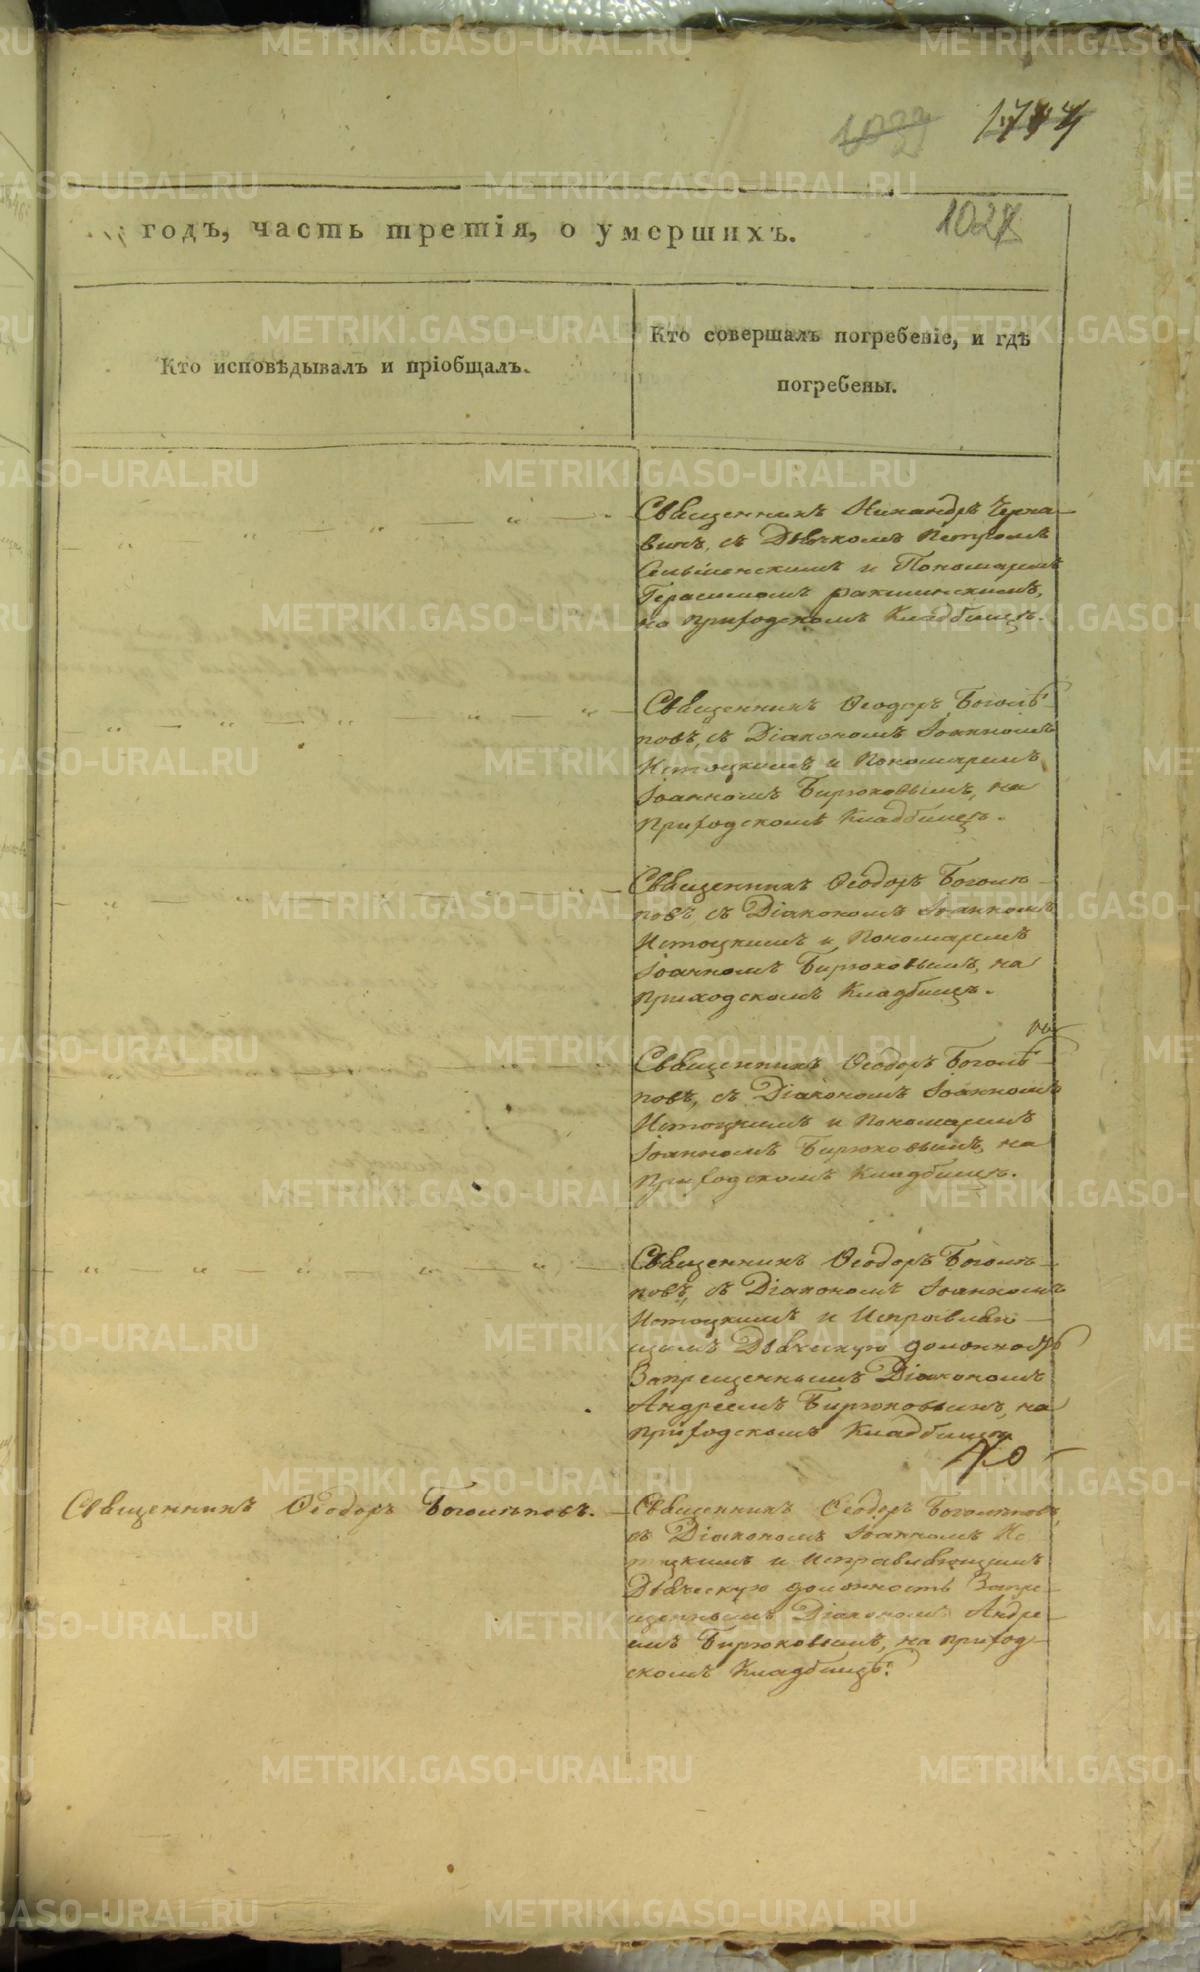 1027
годъ, часть третія, о умершихъ.
Кто исповѣдывалъ и пріобщалъ.
Кто совершалъ погребеніе, и гдѣ
погребены.
Священникъ Никандръ Черна-
винъ, съ Дьячкомъ Петромъ
и Пономаремъ
Герасимомъ
на приходскомъ Кладбищѣ.
Священникъ Ѳеодоръ Боголѣ-
повъ, съ Діакономъ Іоанномъ
Истоцкимъ и Пономаремъ
Іоанномъ Бирюковымъ, на
Приходскомъ Кладбищѣ.
Священникъ Ѳеодоръ Боголѣ-
повъ, съ Діакономъ Іоанномъ
Истоцкимъ и Пономаремъ
Іоанномъ Бирюковымъ, на
приходскомъ Кладбищѣ.
Священникъ Ѳеодоръ Боголѣ-
повъ, съ Діакономъ Іоанномъ
Истоцкимъ и Пономаремъ
Іоанномъ Бирюковымъ, на
Приходскомъ Кладбищѣ.
Священникъ Ѳеодоръ Боголѣ-
повъ, съ Діакономъ Іоанномъ
Истоцкимъ и Исправляю-
щимъ Дьяческую должность
Запрещеннымъ Діакономъ
Андреемъ Бирюковымъ, на
приходскомъ Кладбищѣ
Священникъ Ѳеодоръ Боголѣповъ.
Священникъ Ѳеодоръ Боголѣповъ,
съ Діакономъ Іоанномъ Ис
тоцкимъ и Исправляющимъ
Дьяческую должность Запре-
щеннымъ Діакономъ Андре-
емъ Бирюковымъ, на приход-
скомъ Кладбищѣ.
METRIKI.GASO-URAL.RU